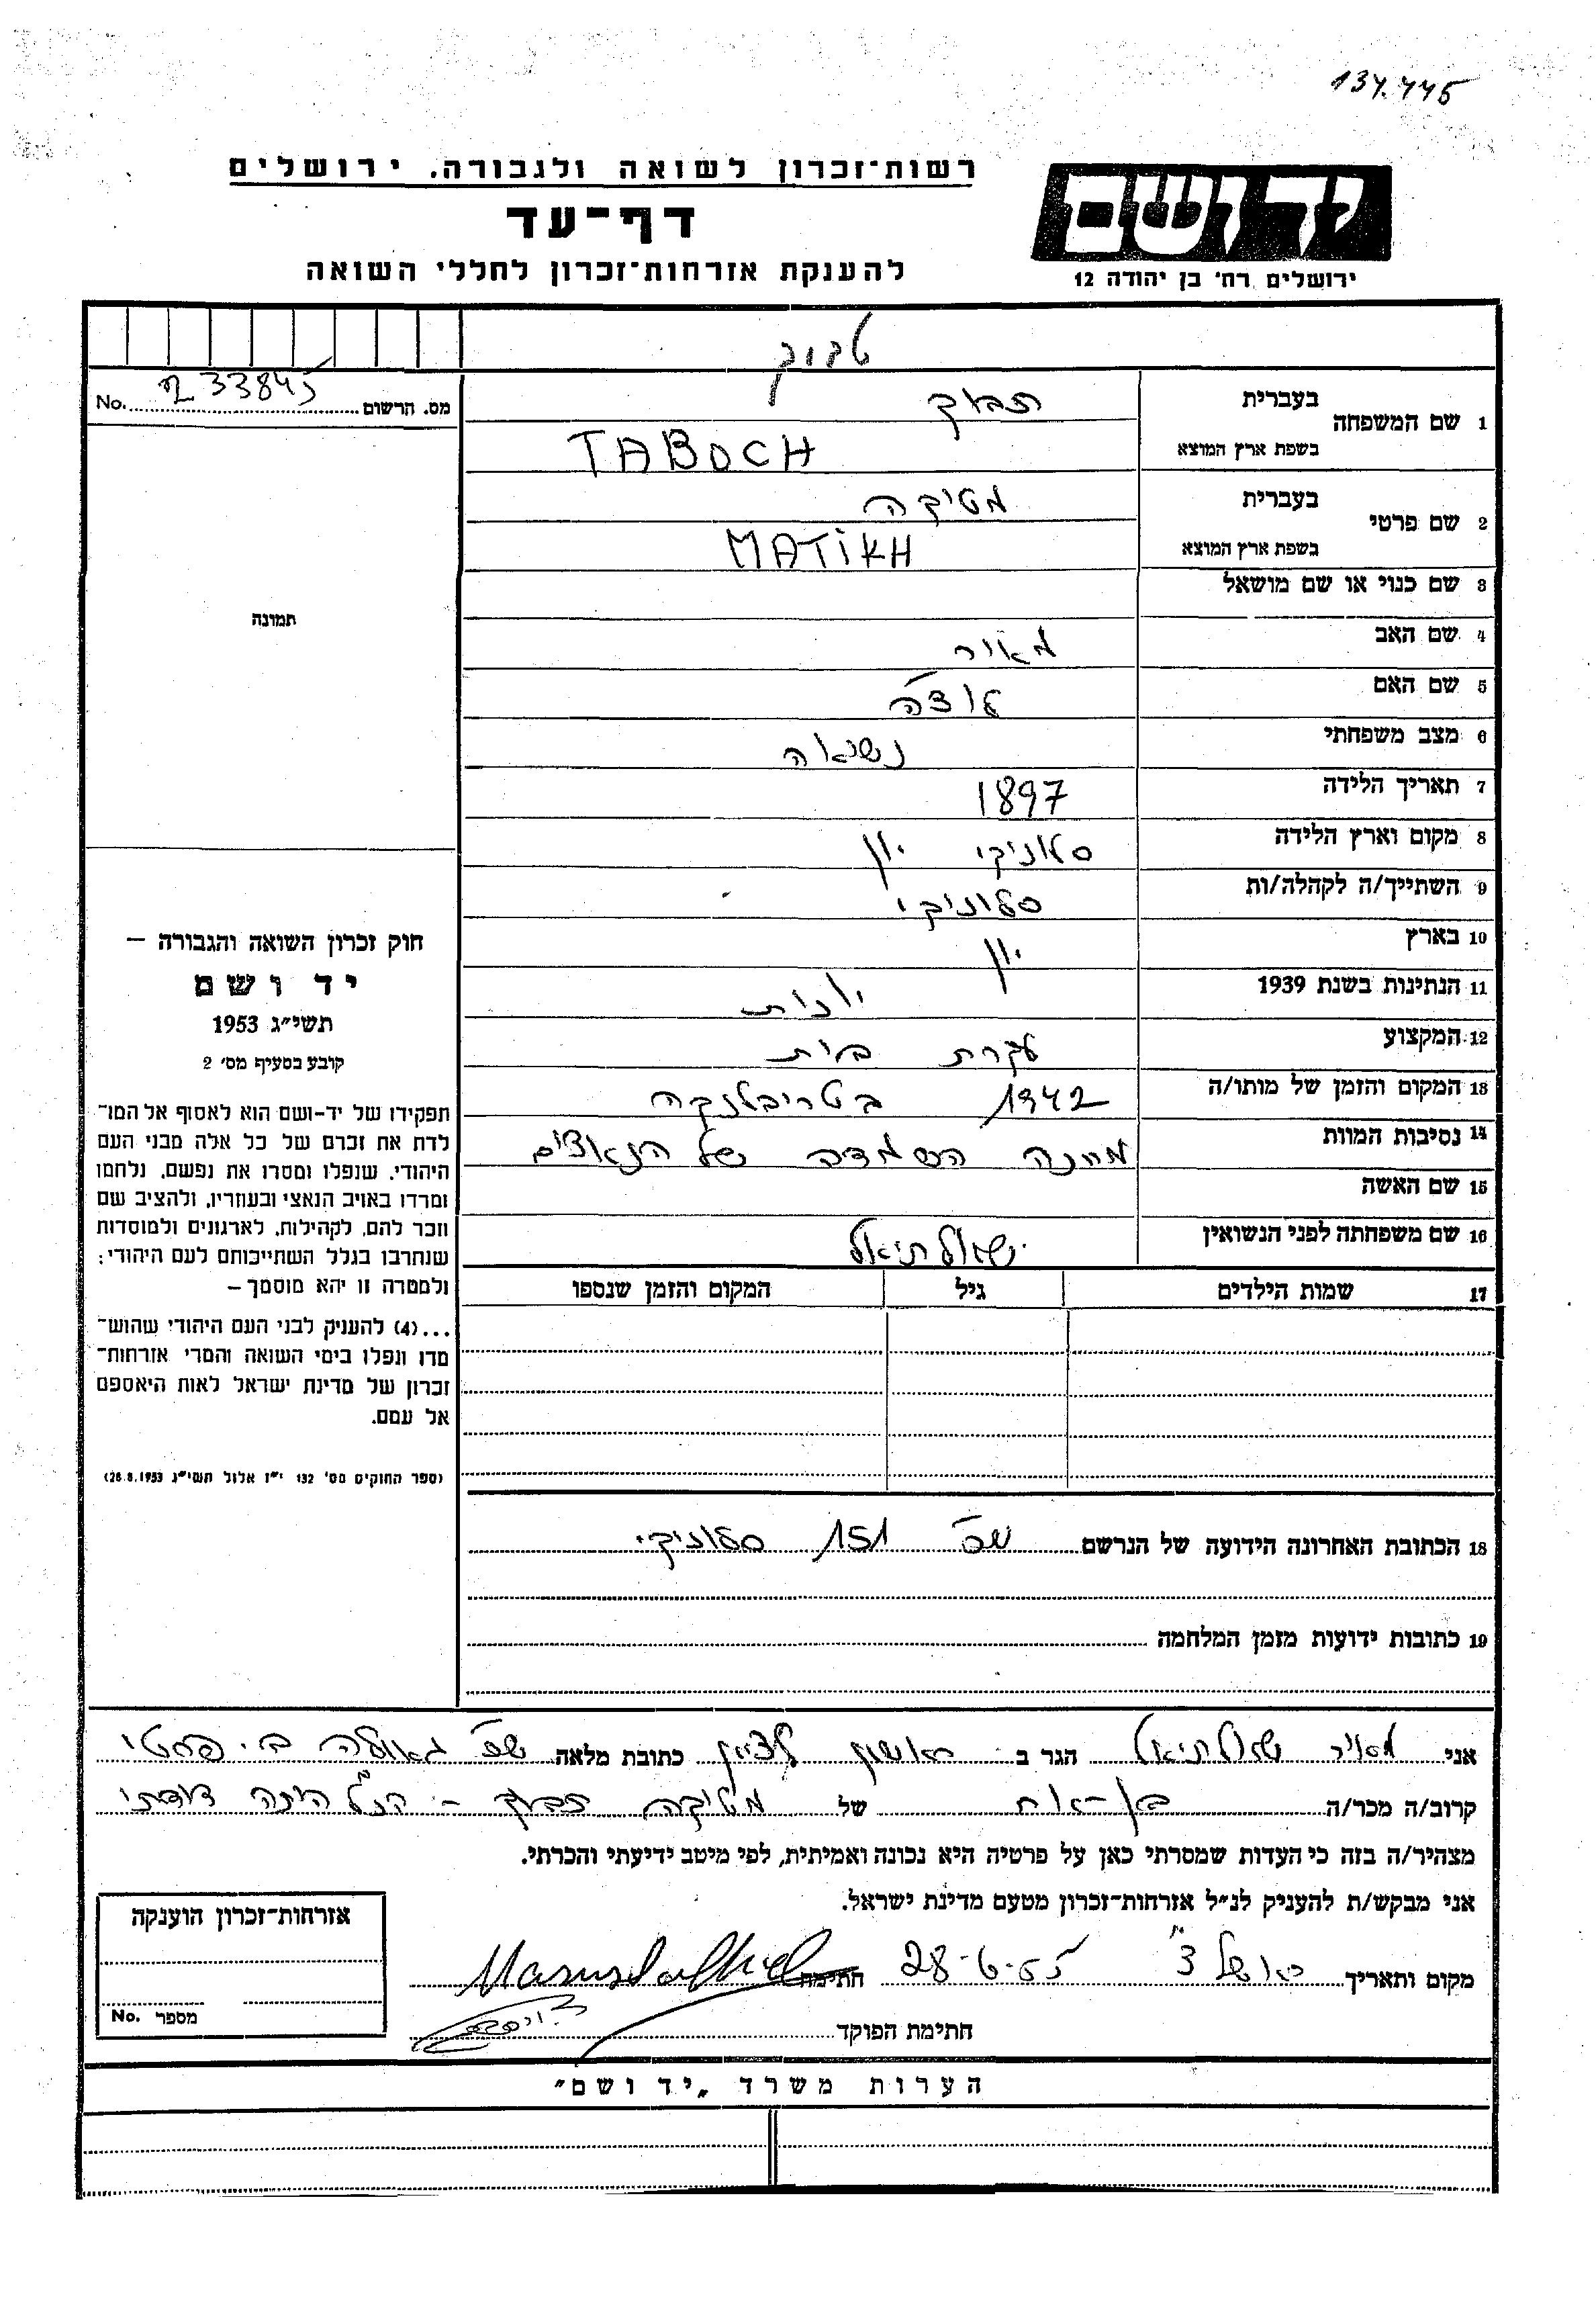 134.445
רשות־זכרון לשואה ולגבורה. ירושלים
דף־עד
להענקת אזרחות־זכרון לחללי השואה
ידושם
ירושלים רח' בן יהודה 12
טבוך
מס. הרשום 233845 No.
1 שם המשפחה
בעברית תבוך
בשפת ארץ המוצא TABOCH
2 שם פרטי
בעברית מטיקה
בשפת ארץ המוצא MATIKH
3 שם כנוי או שם מושאל
4 שם האב מאיר
5 שם האם
6 מצב משפחתי נשואה
7 תאריך הלידה 1897
8 מקום וארץ הלידה סלוניקי יון
9 השתייך/ה לקהלה/ות סלוניקי
10 בארץ יון
11 הנתינות בשנת 1939 יונית
12 המקצוע עקרת בית
13 המקום והזמן של מותו/ה 1942 בטריבלנקה
14 נסיבות המוות מחנה השמדה של הנאצים
15 שם האשה
16 שם משפחתה לפני הנשואין שאלתיאל
17 שמות הילדים גיל המקום והזמן שנספו
תמונה
חוק זכרון השואה והגבורה –
יד ושם
תשי״ג 1953
קובע בסעיף מס׳ 2
תפקידו של יד-ושם הוא לאסוף אל המו־
לדת את זכרם של כל אלה מבני העם
היהודי, שנפלו ומסרו את נפשם, נלחמו
ומרדו באויב הנאצי ובעוזריו, ולהציב שם
וזכר להם, לקהילות, לארגונים ולמוסדות
שנחרבו בגלל השתייכותם לעם היהודי;
ולמטרה זו יהא מוסמך –
...(4) להעניק לבני העם היהודי שהוש־
מדו ונפלו בימי השואה והמרי אזרחות־
זכרון של מדינת ישראל לאות היאספם
אל עמם.
(ספר החוקים מס׳ 132 י״ז אלול תשי״ג 28.8.1953)
18 הכתובת האחרונה הידועה של הנרשם 151 סלוניקי
19 כתובות ידועות מזמן המלחמה
אני מאיר שאלתיאל הגר ב ראשון לציון כתובת מלאה שכ׳ גאולה ב.
קרוב/ה מכר/ה בן-אח של מטיקה תבוך - הנ״ל היתה דודתי
מצהיר/ה בזה כי העדות שמסרתי כאן על פרטיה היא נכונה ואמיתית, לפי מיטב ידיעתי והכרתי.
אני מבקש/ת להעניק לנ״ל אזרחות־זכרון מטעם מדינת ישראל.
מקום ותאריך ראשל״צ 28-6-55 חתימה
חתימת הפוקד
אזרחות־זכרון הוענקה
מספר No.
הערות משרד „יד ושם״